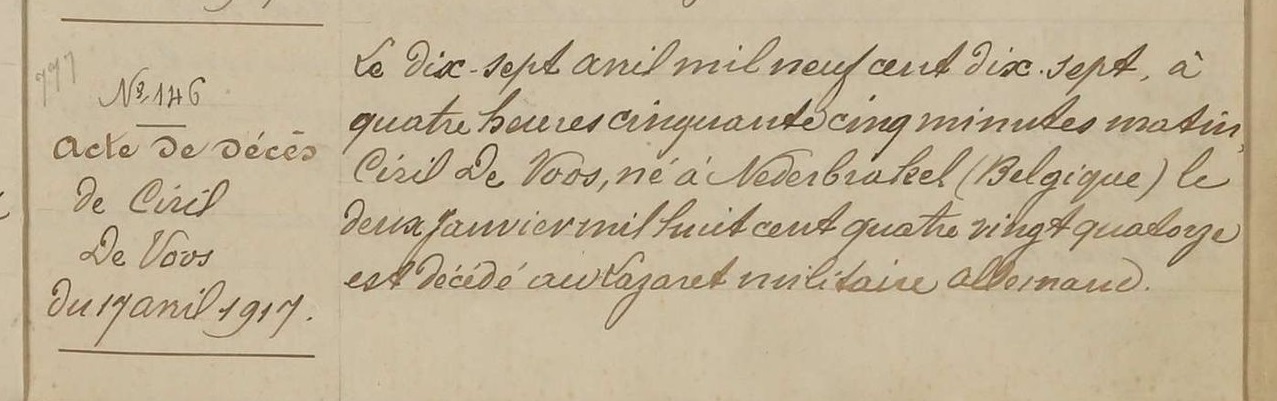 777
Nº 146
Acte de décès
de Ciril
De Voos
du 17 avril 1917.
Le dix-sept avril mil neuf cent dix-sept, à
quatre heures cinquante cinq minutes matin,
Ciril De Voos, né à Nederbrakel (Belgique) le
deux Janvier mil huit cent quatre vingt quatorze
est décédé au Lazaret militaire allemand.